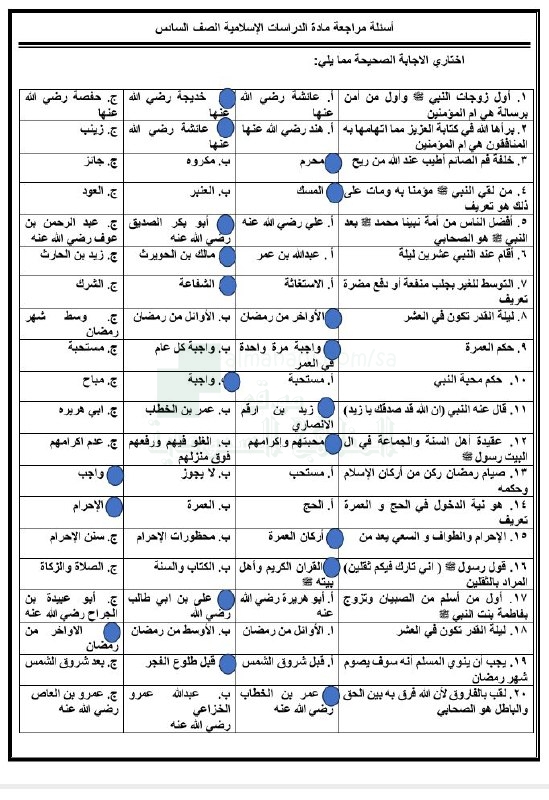 أسئلة مراجعة مادة الدراسات الإسلامية الصف السادس
اختاري الاجابة الصحيحة مما يلي:
١. أول زوجات النبي ﷺ وأول من آمن برسالة هي ام المؤمنين أ. عائشة رضي الله عنها خديجة رضي الله عنها ج. حفصة رضي الله عنها
٢. برأها الله في كتابة العزيز مما اتهامها به المنافقون هي ام المؤمنين أ. هند رضي الله عنها عائشة رضي الله عنها ج. زينب
٣. خلفة فم الصائم أطيب عند الله من ريح محرم ب. مكروه ج. جائز
٤. من لقي النبي ﷺ مؤمنا به ومات على ذلك هو تعريف المسك ب. العنبر ج. العود
٥. أفضل الناس من أمة نبينا محمد ﷺ بعد النبي ﷺ هو الصحابي أ. علي رضي الله عنه أبو بكر الصديق رضي الله عنه ج. عبد الرحمن بن عوف رضي الله عنه
٦. أقام عند النبي عشرين ليلة أ. عبدالله بن عمر مالك بن الحويرث ج. زيد بن الحارث
٧. التوسط للغير بجلب منفعة أو دفع مضرة تعريف أ. الاستغاثة الشفاعة ج. الشرك
٨. ليلة القدر تكون في العشر الأواخر من رمضان ب. الأوائل من رمضان ج. وسط شهر رمضان
٩. حكم العمرة واجبة مرة واحدة في العمر ب. واجبة كل عام ج. مستحبة
١٠. حكم محبة النبي أ. مستحبة . واجبة ج. مباح
١١. قال عنه النبي (ان الله قد صدقك يا زيد) زيد بن ارقم الانصاري ب. عمر بن الخطاب ج. ابي هريره
١٢. عقيدة أهل السنة والجماعة في ال البيت رسول ﷺ محبتهم وإكرامهم ب. الغلو فيهم ورفعهم فوق منزلهم ج. عدم اكرامهم
١٣. صيام رمضان ركن من أركان الإسلام وحكمه أ. مستحب ب. لا يجوز واجب
١٤. هو نية الدخول في الحج و العمرة تعريف أ. الحج ب. العمرة الإحرام
١٥. الإحرام والطواف و السعي يعد من أركان العمرة ب. محظورات الإحرام ج. سنن الإحرام
١٦. قول رسول ﷺ ( اني تارك فيكم ثقلين) المراد بالثقلين القران الكريم وأهل بيته ﷺ ب. الكتاب والسنة ج. الصلاة والزكاة
١٧. أول من أسلم من الصبيان وتزوج بفاطمة بنت النبي ﷺ أ. أبو هريرة رضي الله عنه علي بن ابي طالب رضي الله ج. أبو عبيدة بن الجراح رضي الله عنه
١٨. ليلة القدر تكون في العشر ا. الأوائل من رمضان ب. الأوسط من رمضان الاواخر من رمضان
١٩. يجب ان ينوي المسلم أنه سوف يصوم شهر رمضان أ. قبل شروق الشمس قبل طلوع الفجر ج. بعد شروق الشمس
٢٠. لقب بالفاروق لأن الله فرق به بين الحق والباطل هو الصحابي عمر بن الخطاب رضي الله عنه ب. عبدالله عمرو الخزاعي رضي الله عنه ج. عمرو بن العاص رضي الله عنه